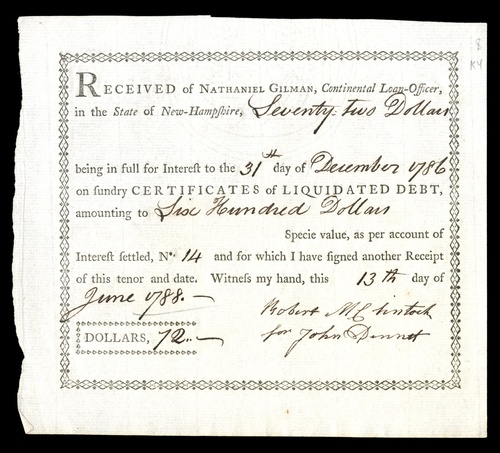 RECEIVED of NATHANIEL GILMAN, Continental Loan-Officer,
in the State of New-Hampſhire, Seventy-two Dollars
being in full for Intereſt to the 31th day of December 1786
on ſundry CERTIFICATES of LIQUIDATED DEBT,
amounting to Six Hundred Dollars
Specie value, as per account of
Intereſt ſettled, No. 14 and for which I have ſigned another Receipt
of this tenor and date. Witneſs my hand, this 13th day of
June 1788.—
Robert McClintock
for John Dennett
DOLLARS, 72..—
8
K4